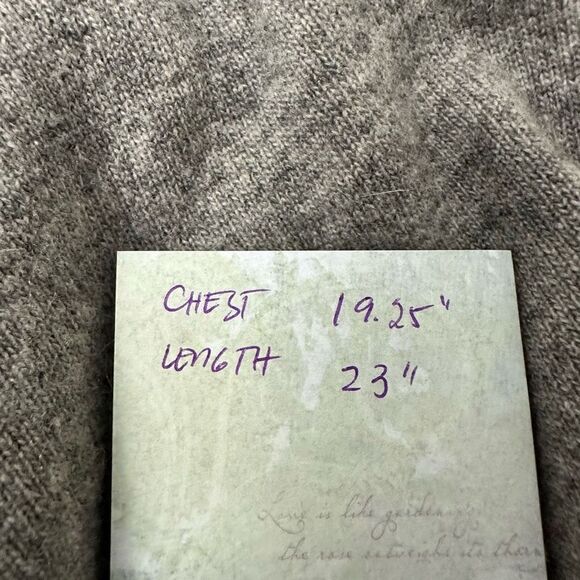 CHEST 19.25"
LENGTH 23"
Love is like gardening
the rose outweighs its thorn